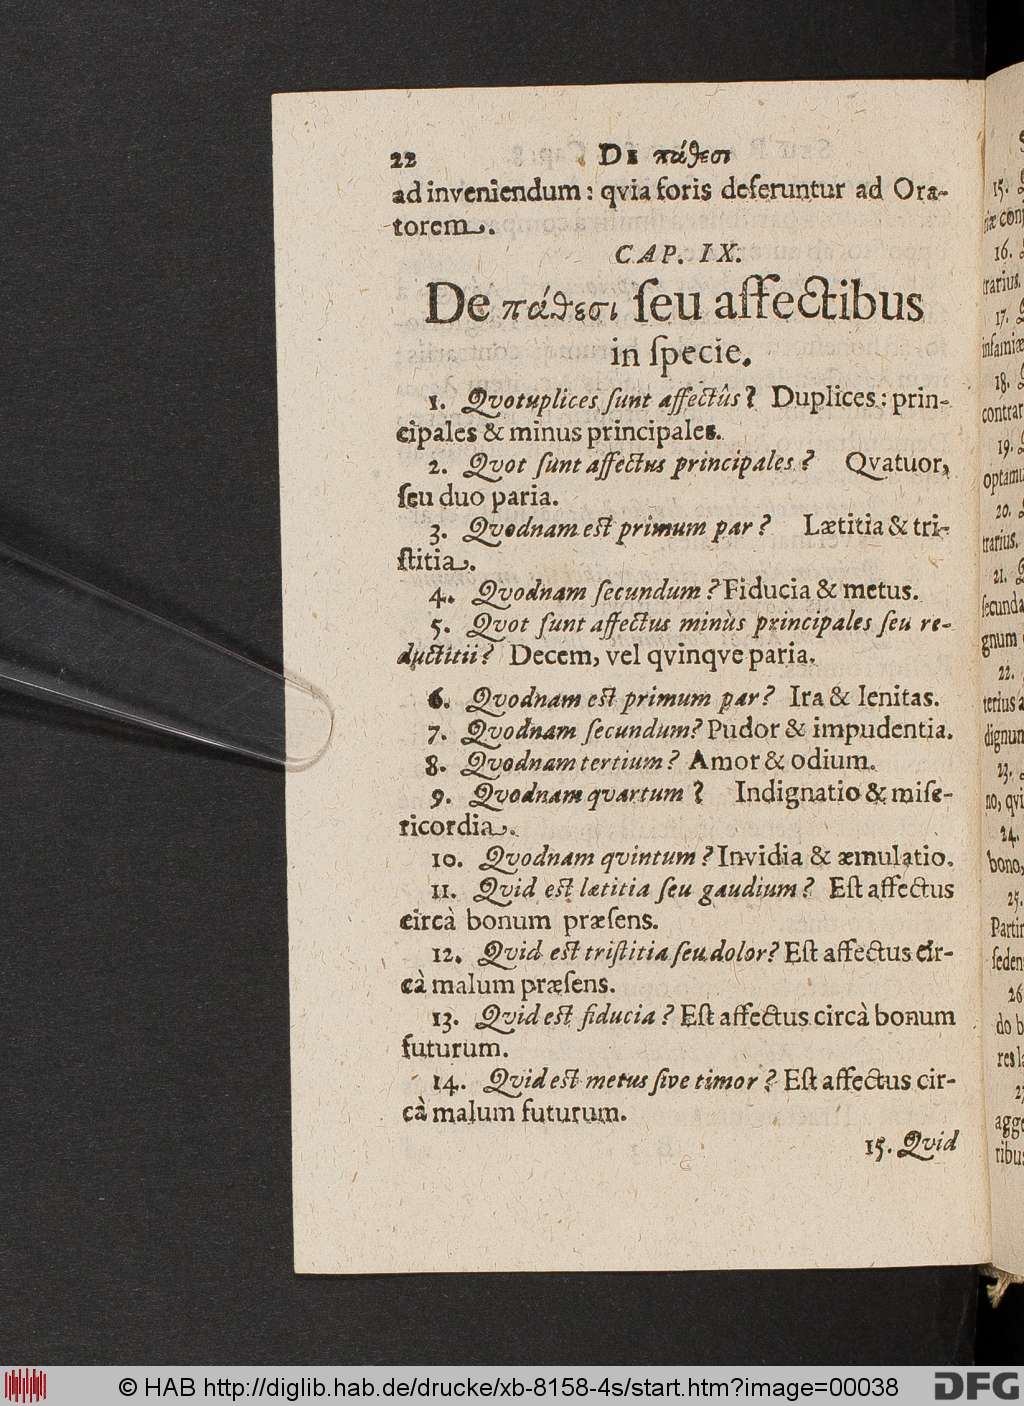 22 DE πάθεσι
ad inveniendum: qvia foris deferuntur ad Ora-
torem.
CAP. IX.
De πάθεσι ſeu affectibus
in ſpecie.
1. Qvotuplices ſunt affectûs? Duplices: prin-
cipales & minus principales.
2. Qvot ſunt affectus principales? Qvatuor,
ſeu duo paria.
3. Qvodnam eſt primum par? Lætitia & tri-
ſtitia.
4. Qvodnam ſecundum? Fiducia & metus.
5. Qvot ſunt affectus minùs principales ſeu re-
ductitii? Decem, vel qvinqve paria.
6. Qvodnam eſt primum par? Ira & lenitas.
7. Qvodnam ſecundum? Pudor & impudentia.
8. Qvodnam tertium? Amor & odium.
9. Qvodnam qvartum? Indignatio & miſe-
ricordia.
10. Qvodnam qvintum? Invidia & æmulatio.
11. Qvid eſt lætitia ſeu gaudium? Eſt affectus
circà bonum præſens.
12. Qvid eſt triſtitia ſeu dolor? Eſt affectus cir-
cà malum præſens.
13. Qvid eſt fiducia? Eſt affectus circà bonum
futurum.
14. Qvid eſt metus ſive timor? Eſt affectus cir-
cà malum futurum.
15. Qvid
15.
16.
trarius.
17.
infamiæ
18.
contrar
19.
optamu
20.
trarius.
21.
ſecunda
gnum
22.
tertius a
dignum
23.
no, qvi
24.
bono,
25.
Partin
ſeden
26
do b
res la
27
agge
ribus
© HAB http://diglib.hab.de/drucke/xb-8158-4s/start.htm?image=00038
DFG